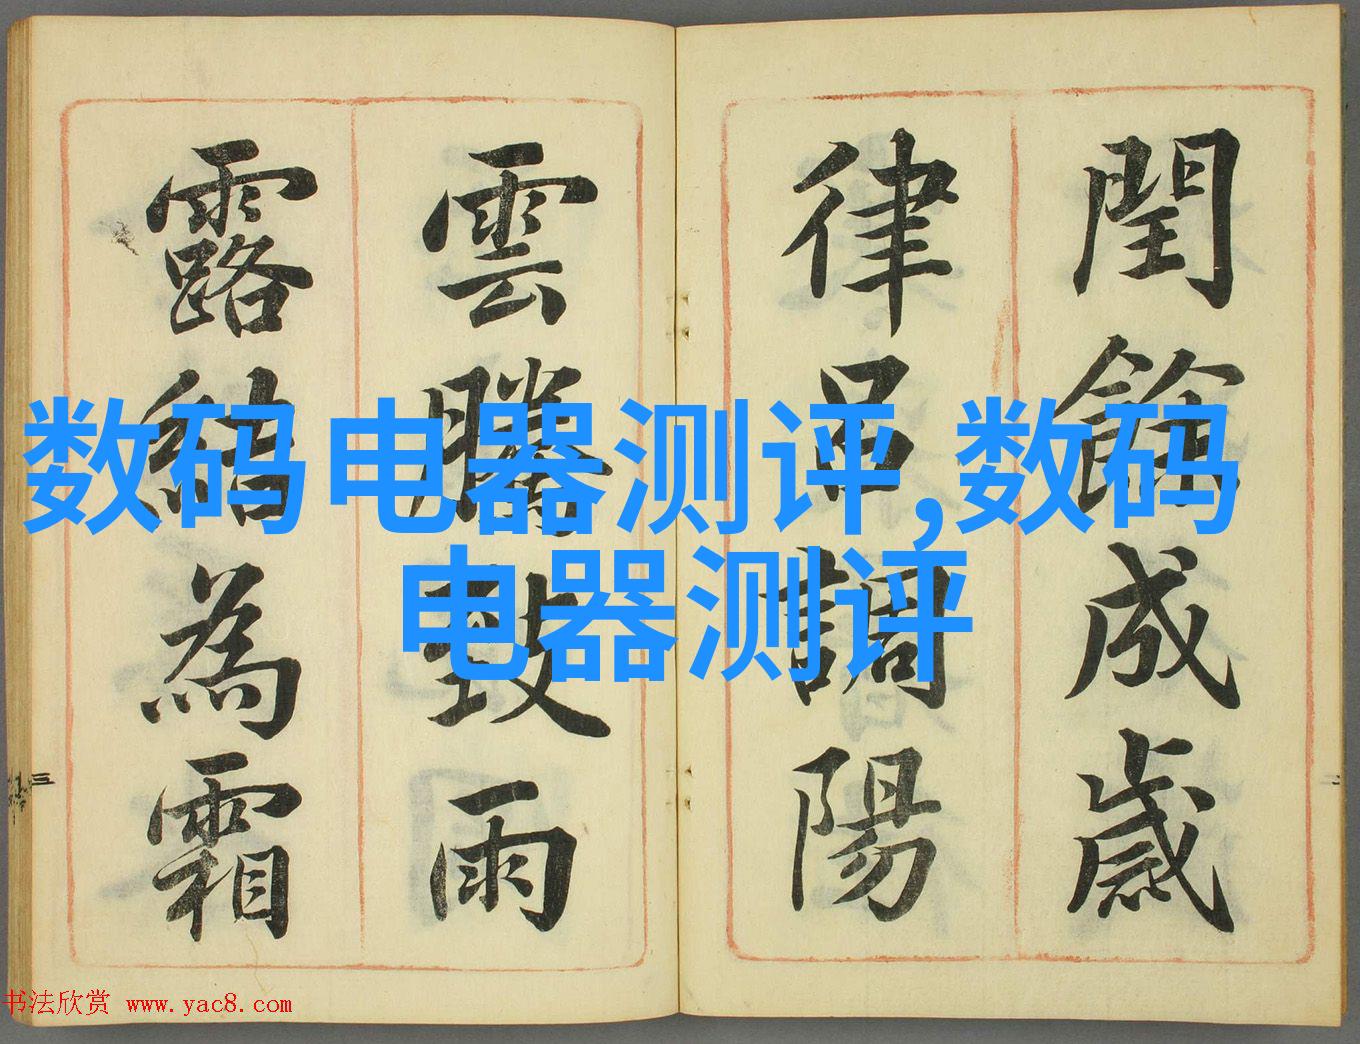 閏餘成歲
律呂調陽
雲騰致雨
露結為霜
数码电器测评,数码
电器测评
三
二
书法欣赏 www.yac8.com